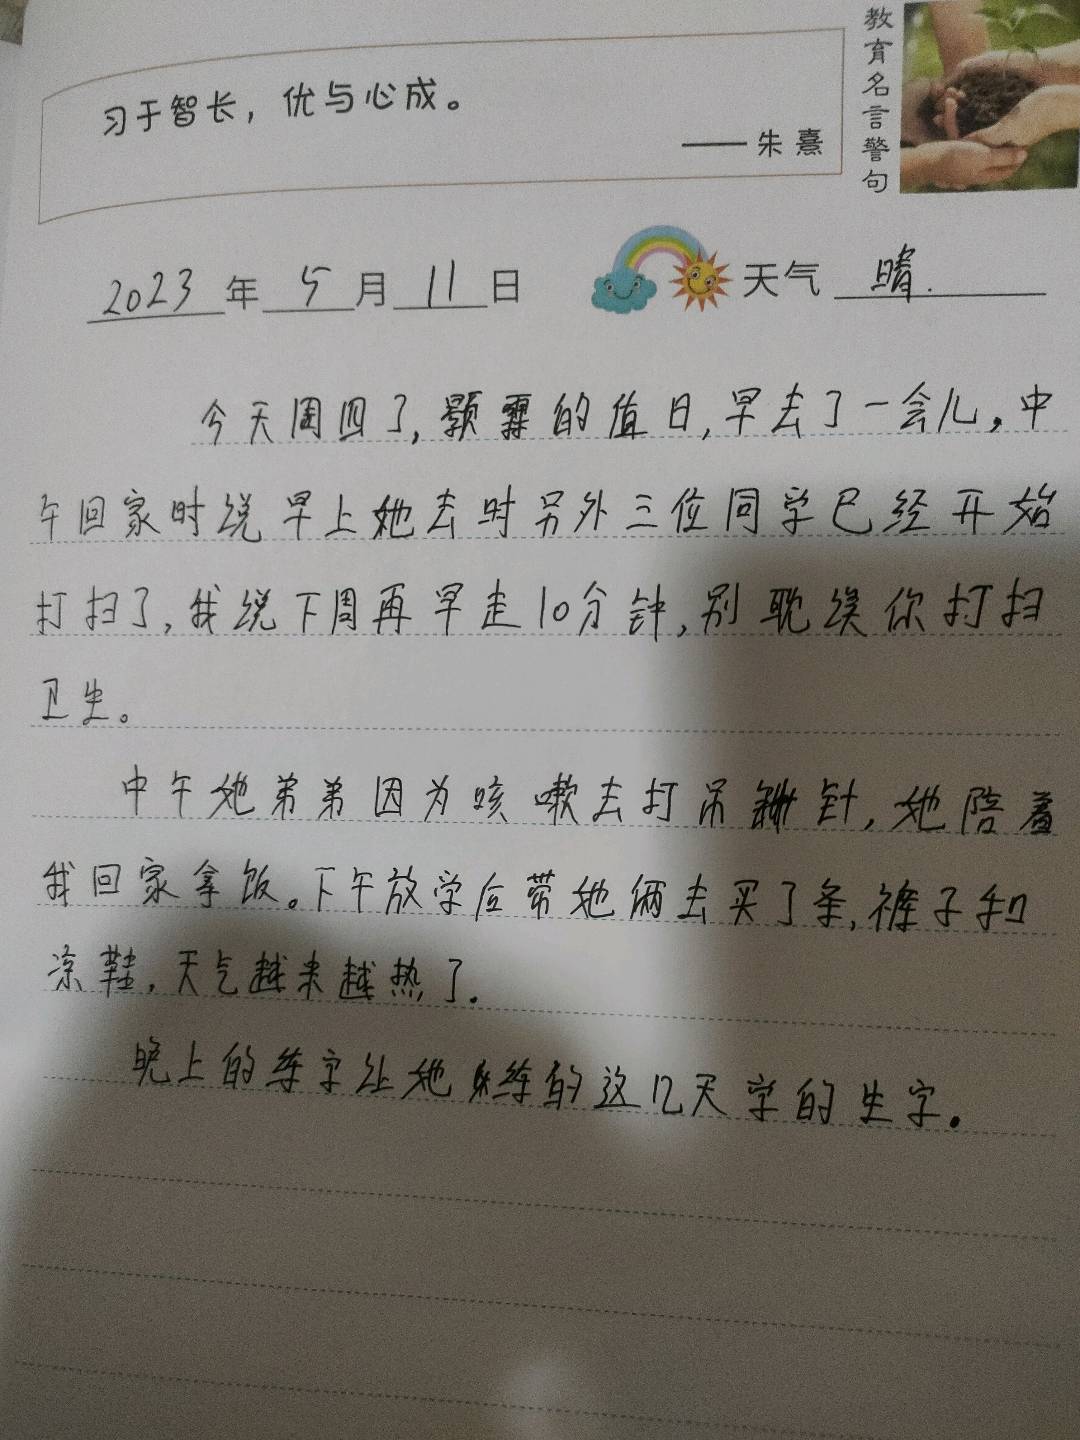 习于智长，优与心成。
——朱熹
教育名言警句
2023年5月11日 天气 晴.
今天周四了,颢霖的值日,早去了一会儿,中
午回家时说早上她去时另外三位同学已经开始
打扫了,我说下周再早走10分钟,别耽误你打扫
卫生。
中午她弟弟因为咳嗽去打吊针,她陪着
我回家拿饭。下午放学后带她俩去买了条,裤子和
凉鞋,天气越来越热了.
晚上的练字让她练的这几天学的生字.